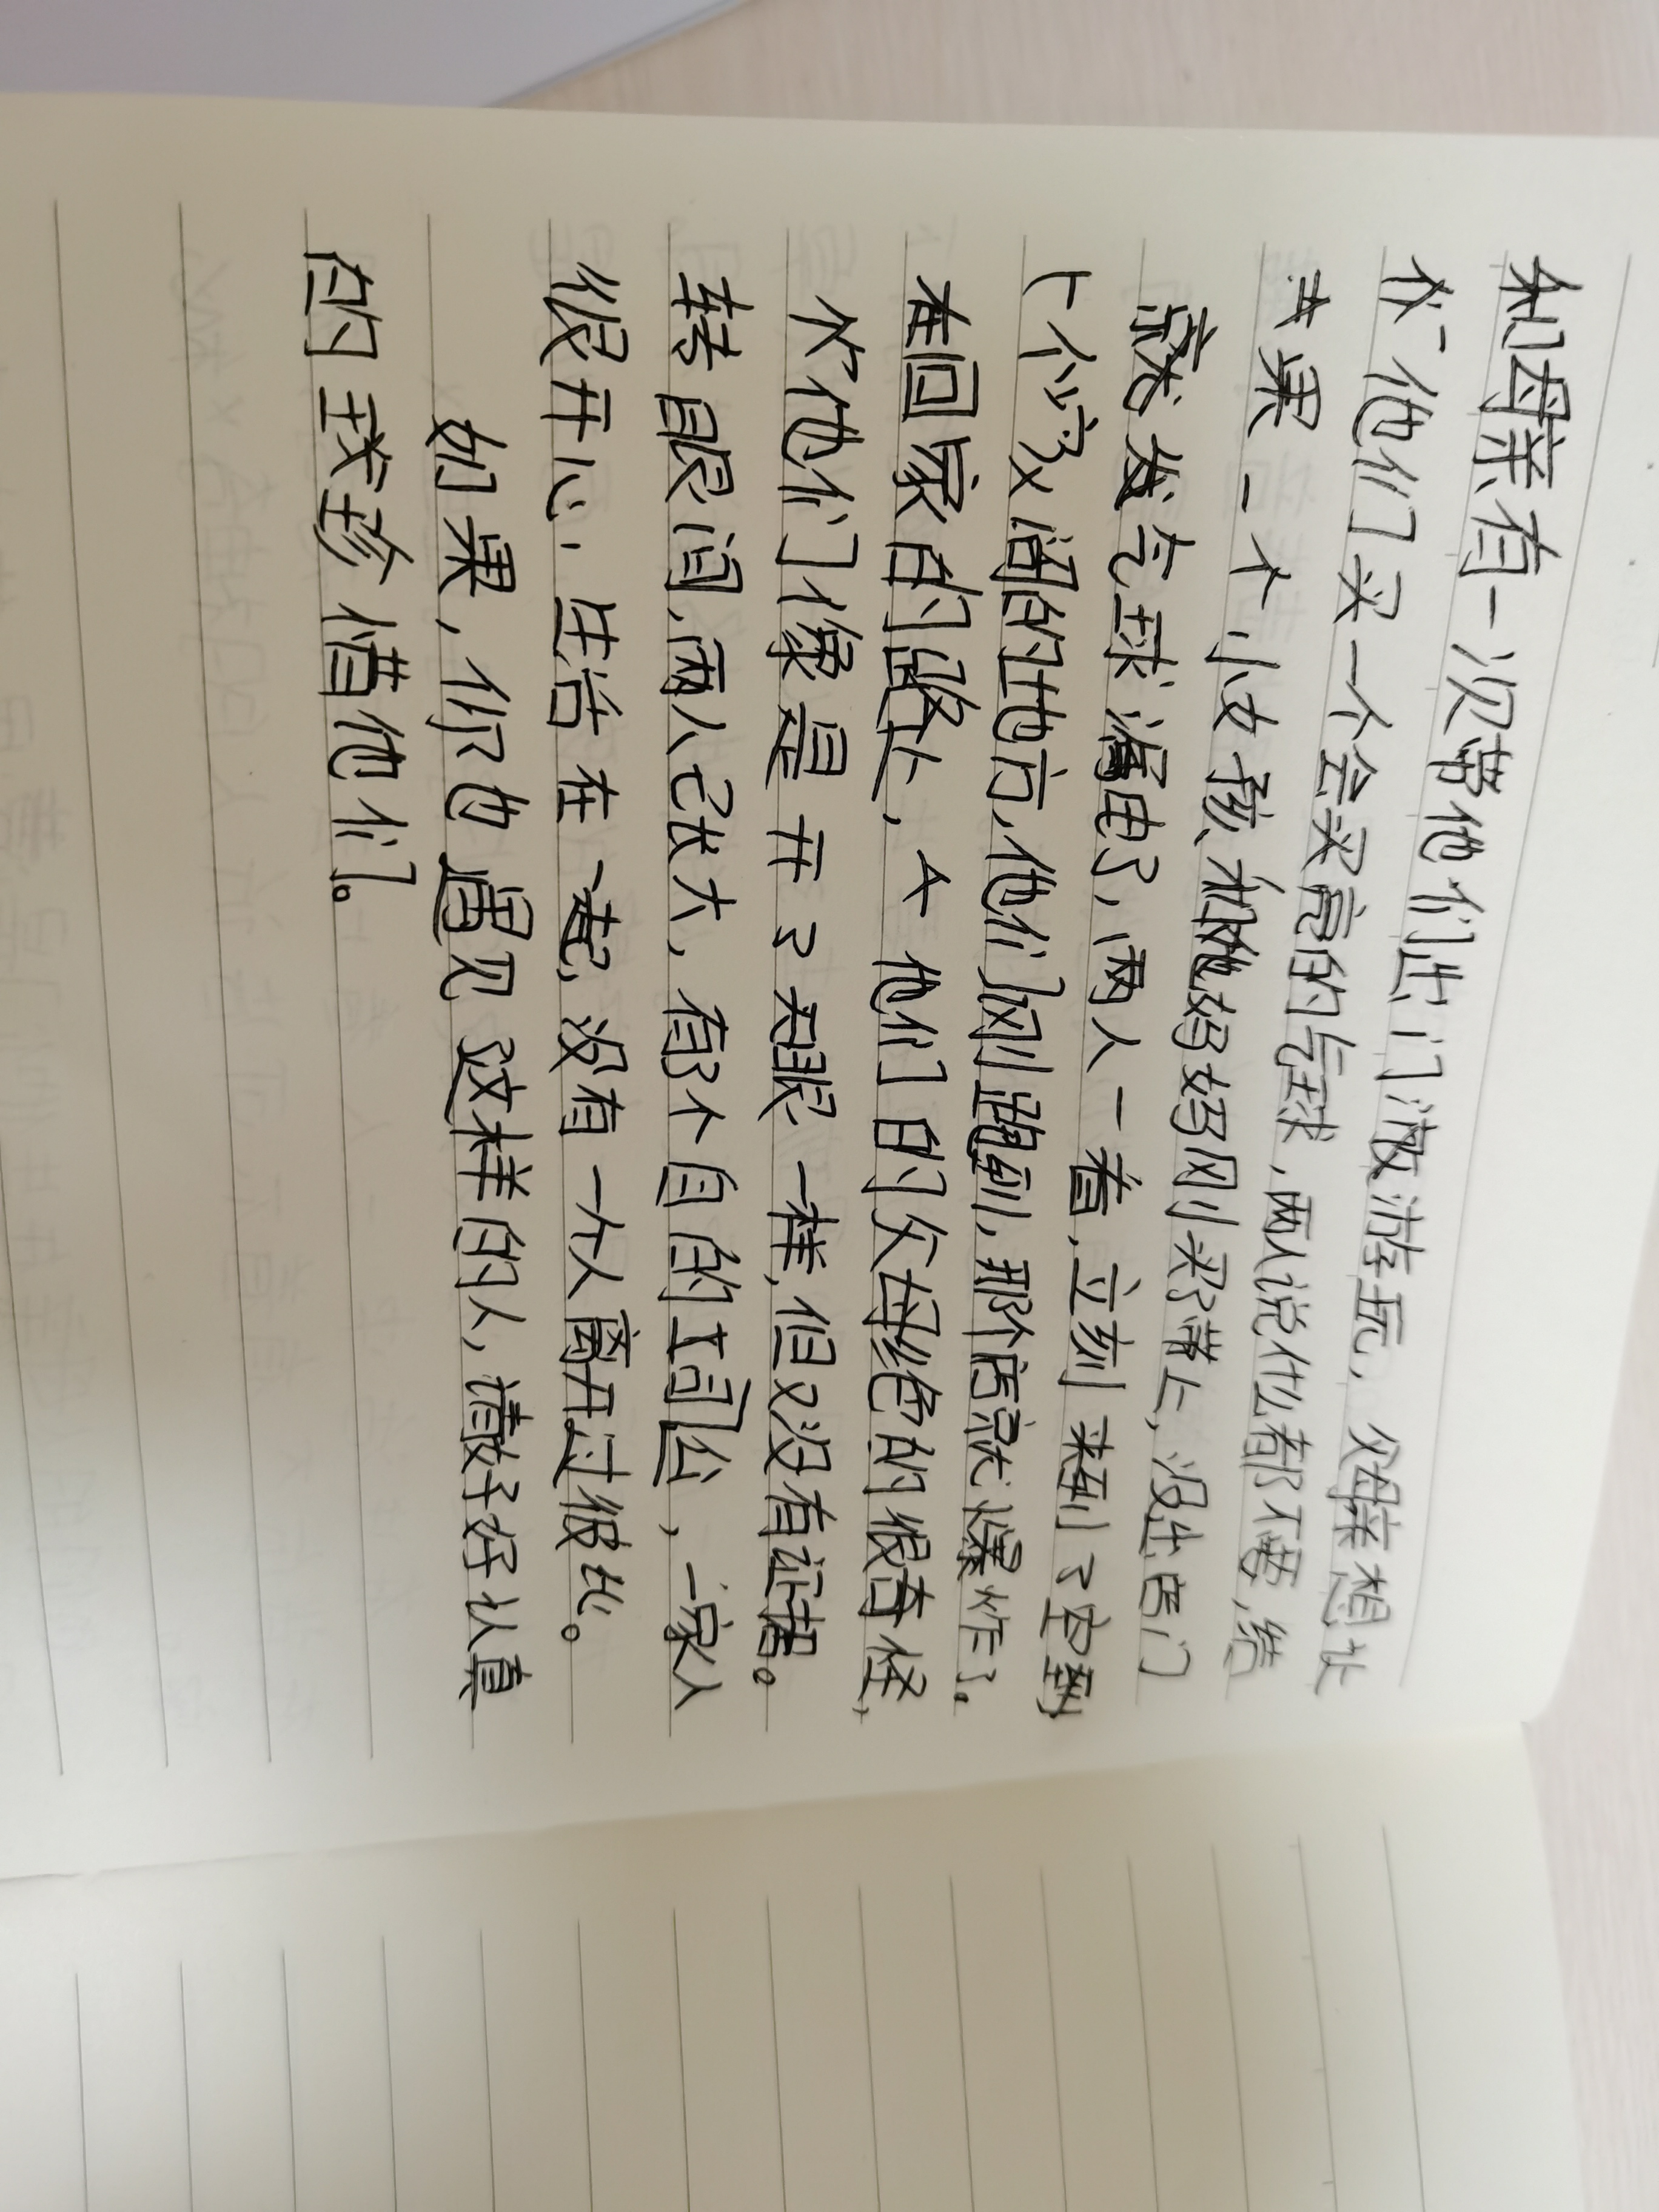 和母亲有一次带他们出门激游玩，父母亲想让
他们买一个会买亮的气球，两人说什么都不要，结
果一个小女孩和他妈妈刚买了带上，没出店门
就发气球漏电了，两人一看，立刻来到了空
个宽阔的地方，他们刚跑到，那个店就爆炸了。
在回家的路上，他们的父母绝的很奇怪，
他们像是开了天眼一样，但又没有证据。
转眼间，两人已长大，有了个自的工司公，一家人
很开心，生活在一起，没有一个人离开过彼比。
如果，你也遇见这样的人，请好好认真
的珍惜他们。